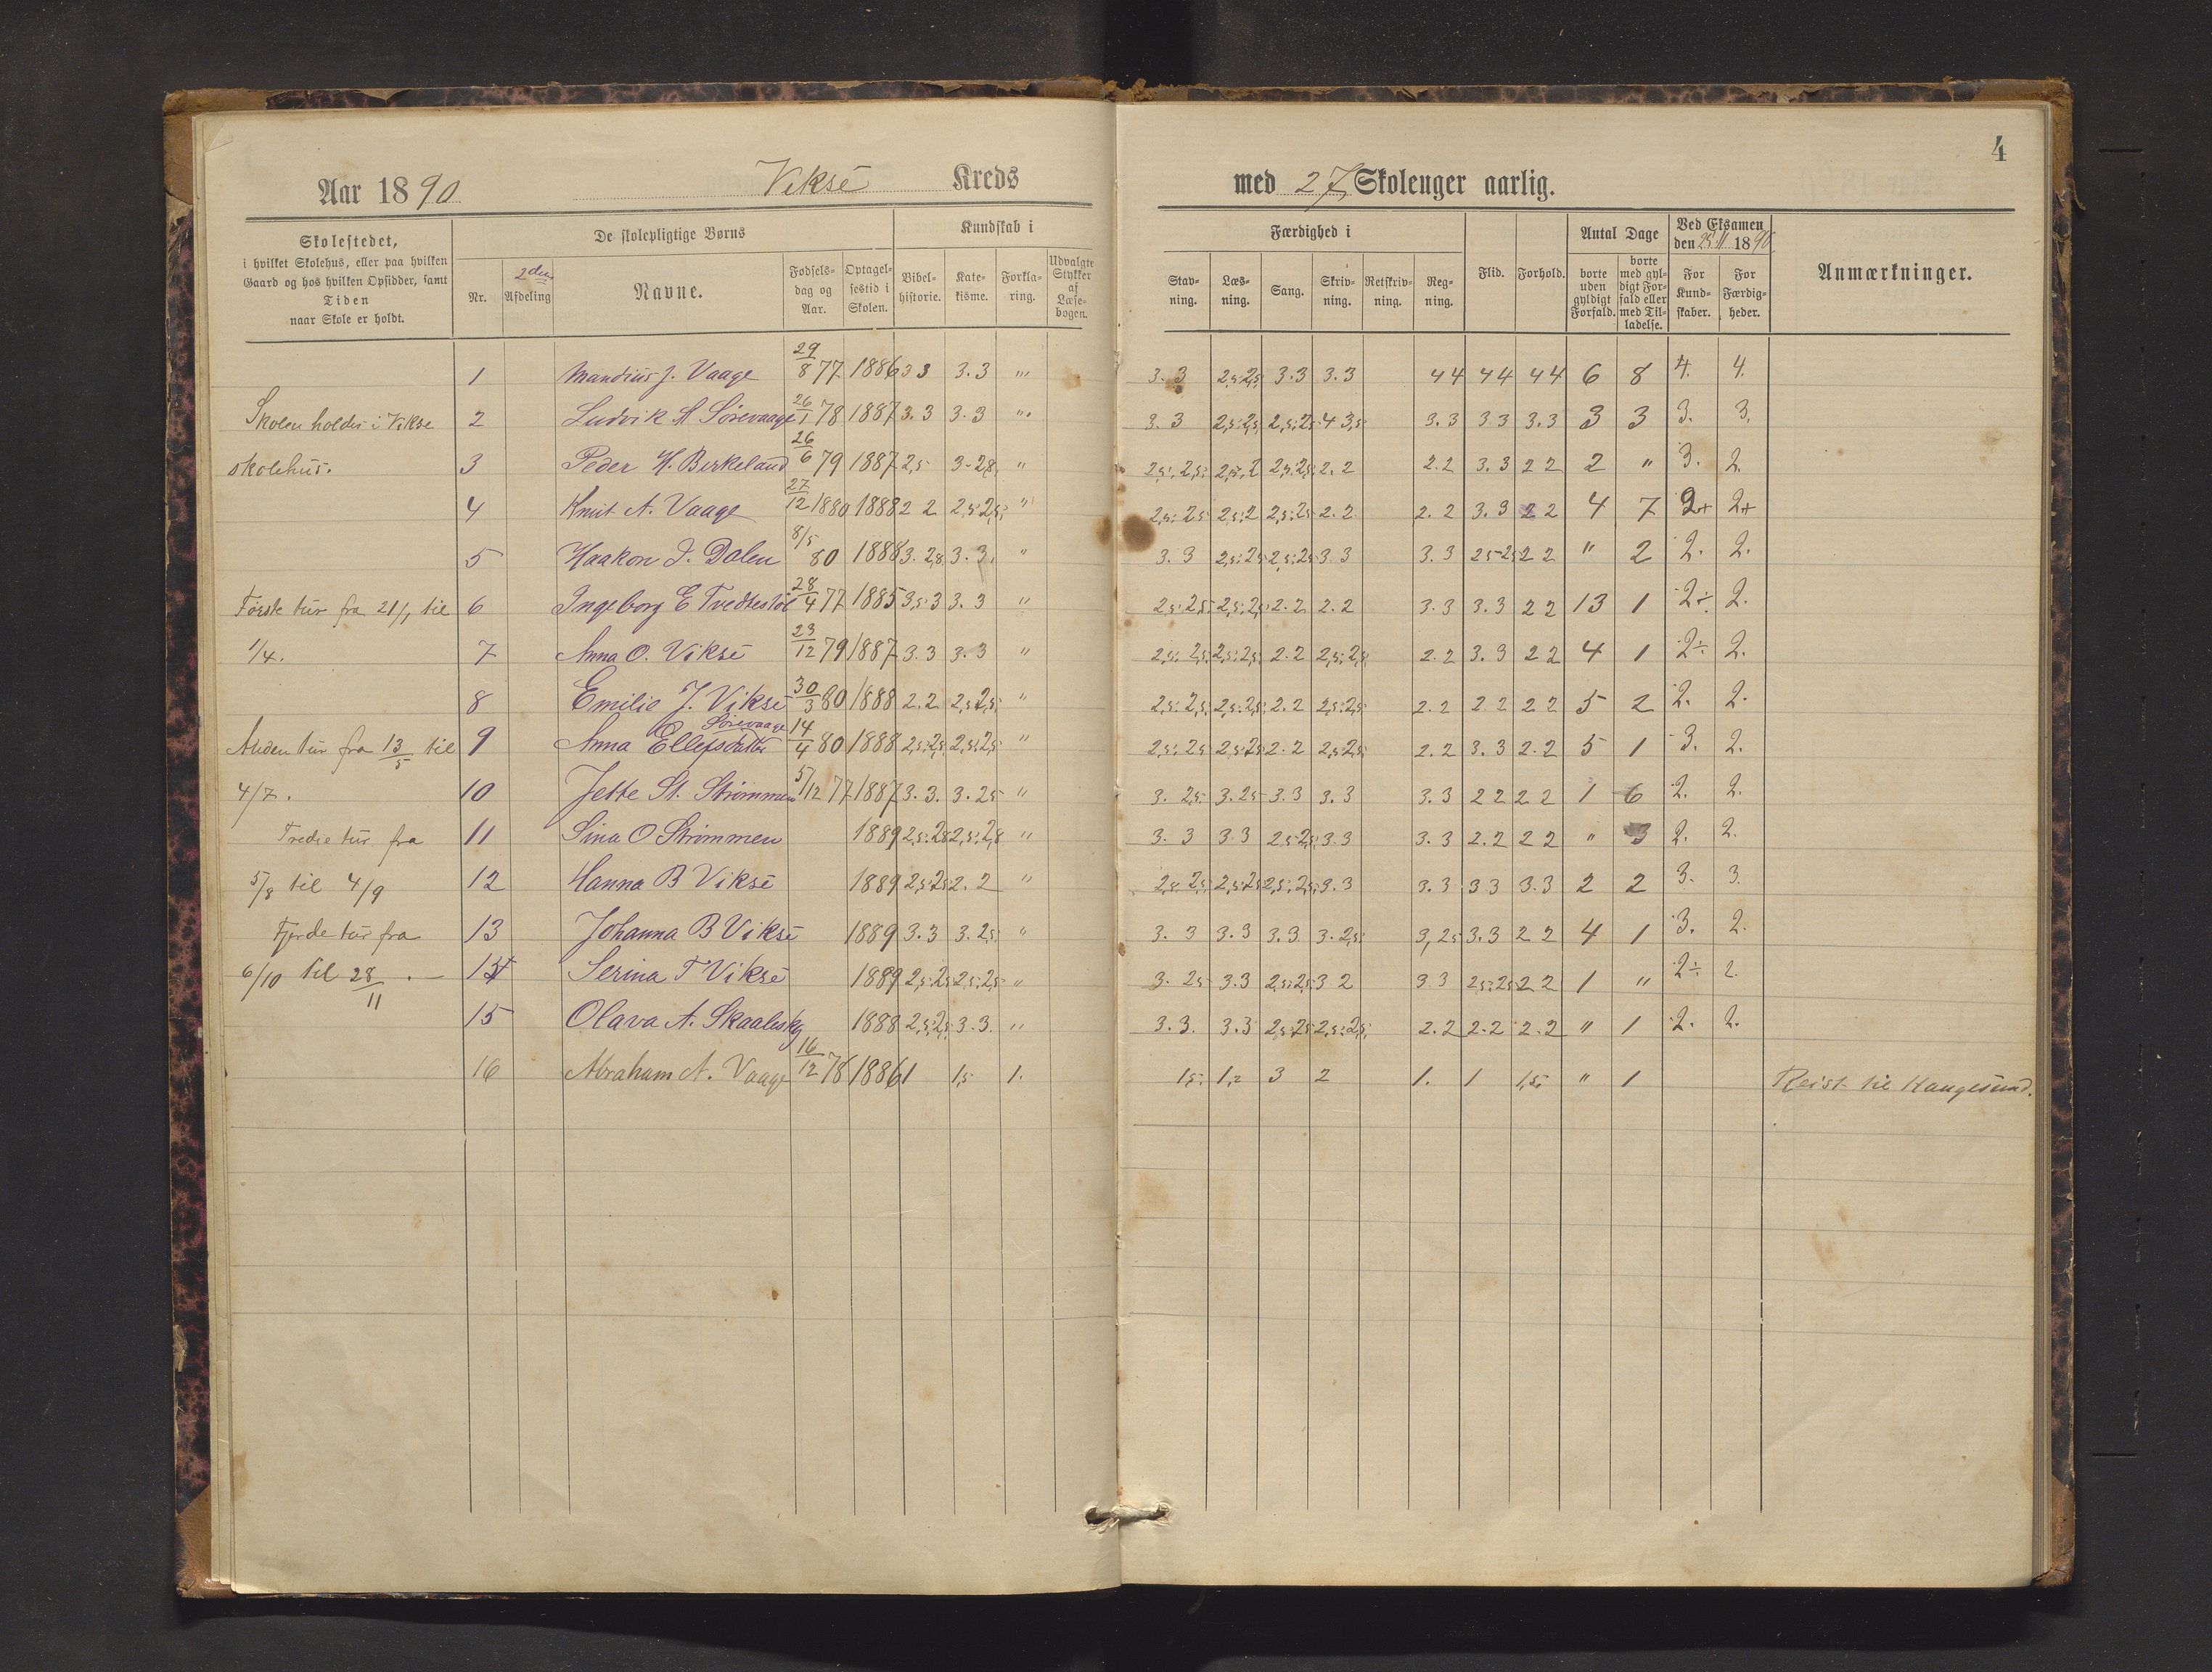 4
Aar 1890 Viksè Kreds med 27 Skoleuger aarlig.
Skolestedet,
i hvilket Skolehus, eller paa hvilken
Gaard og hos hvilken Opsidder, samt
Tiden
naar Skole er holdt.
De skolepligtige Børns
Nr.
2den
Afdeling
Navne.
Fødsels-
dag og
Aar.
Optagel-
sestid i
Skolen.
Kundskab i
Bibel-
historie.
Kate-
kisme.
Forkla-
ring.
Udvalgte
Stykker
af
Læse-
bogen.
Færdighed i
Stav-
ning.
Læs-
ning.
Sang.
Skriv-
ning.
Retskriv-
ning.
Reg-
ning.
Flid.
Forhold.
Antal Dage
borte
uden
gyldigt
Forfald.
borte
med gyl-
digt For-
fald eller
med Til-
ladelse.
Ved Eksamen
den 25/11 1890
For
Kund-
skaber.
For
Færdig-
heder.
Anmærkninger.
Skolen holdes i Vikse
skolehus.
Første tur fra 21/1 til
1/4.
Anden tur fra 13/5 til
4/7.
Tredie tur fra
5/8 til 4/9
Fjerde tur fra
6/10 til 28/11 . —
1 Mandius J. Vaage 29/8 77 1886 3 3 3.3 "' 3.3 2,5.2,5 3.3 3.3 44 44 44 6 8 4. 4.
2 Ludvik M Sørevaage 26/1 78 1887 3.3 3.3 " 3.3 2,5.2,5 2,5.2,5 4 3,5 3.3 3.3 3.3 3 3 3. 3.
3 Peder H. Birkeland 26/6 79 1887 2,5 3-2,8 " 2,5. 2,5 2,5. 2 2,5.2,5 2.2 2.2 3.3 22 2 " 3. 2.
4 Knut A. Vaage 27/12 1880 1888 2 2 2,5 2,5 " 2,5. 2,5 2,5.2 2,5.2,5 2.2 2.2 3.3 22 4 7 2+ 2+
5 Haakon J. Dalen 8/5 80 1888 3. 2,8 3.3. " 3.3 2,5.2,5 2,5.2,5 3.3 3.3 25-25 22 " 2 2. 2.
6 Ingeborg E Tvedtestöl 28/4 77 1885 3,5.3 3.3 " 2,5.2,5 2,5.2,5 2.2 2.2 3.3 3.3 22 13 1 2÷ 2.
7 Anna O. Viksè 23/12 79 1887 3.3 3.3 " 2,5. 2,5 2,5.2,5 2.2 2,5.2,5 2.2 3.3 22 4 1 2÷ 2.
8 Emilie J. Viksè 30/3 80 1888 2.2 2,5 2,5 " 2,5. 2,5 2,5.2,5 2.2 2,5.2,5 2.2 22 22 5 2 2. 2.
9 Anna Ellefsdatter Sørevaage 14/4 80 1888 2,5.2,5 2,5.2,5 " 2,5.2,5 2,5.2,5 2.2 2,5.2,5 2.2 3.3 2.2 5 1 3. 2.
10 Jette St. Strømmen 5/12 77 1887 3.3. 3.25 " 3. 2,5 3.25 3.3 3.3 3.3 22 22 1 6 2. 2.
11 Sina O Strømmen 1889 2,5.2,8 2,5.2,8 " 3.3 3.3 2,5.2,5 3.3 3.3 2.2 22 " 3 2. 2.
12 Hanna B Viksè 1889 2,5.2,5 2.2 " 2,8 2,5 2,5.2,5 2,5.2,5 3.3 3.3 33 3.3 2 2 3. 3.
13 Johanna B Viksè 1889 3.3 3.25 " 3.3 3.3 3.3 3.2,5 3,25 3.3 22 4 1 3. 2.
14 Serina T Viksè 1889 2,5.2,5 2,5.2,5 " 3.25 3.3 2,5.2,5 3 2 3 3 2,5.2,5 22 1 " 2÷ 2.
15 Olava A. Skaalnskg 1888 2,5.2,5 3.3. " 3.3. 3.3 2,5.2,5 2,5.2,5 2.2 2.2 2.2 " 1 2. 2.
16 Abraham A. Vaage 16/12 78 1886 1 1,5 1. 1,5 1,2 3 2 1. 1 1,5 " 1 Reist til Haugesund.